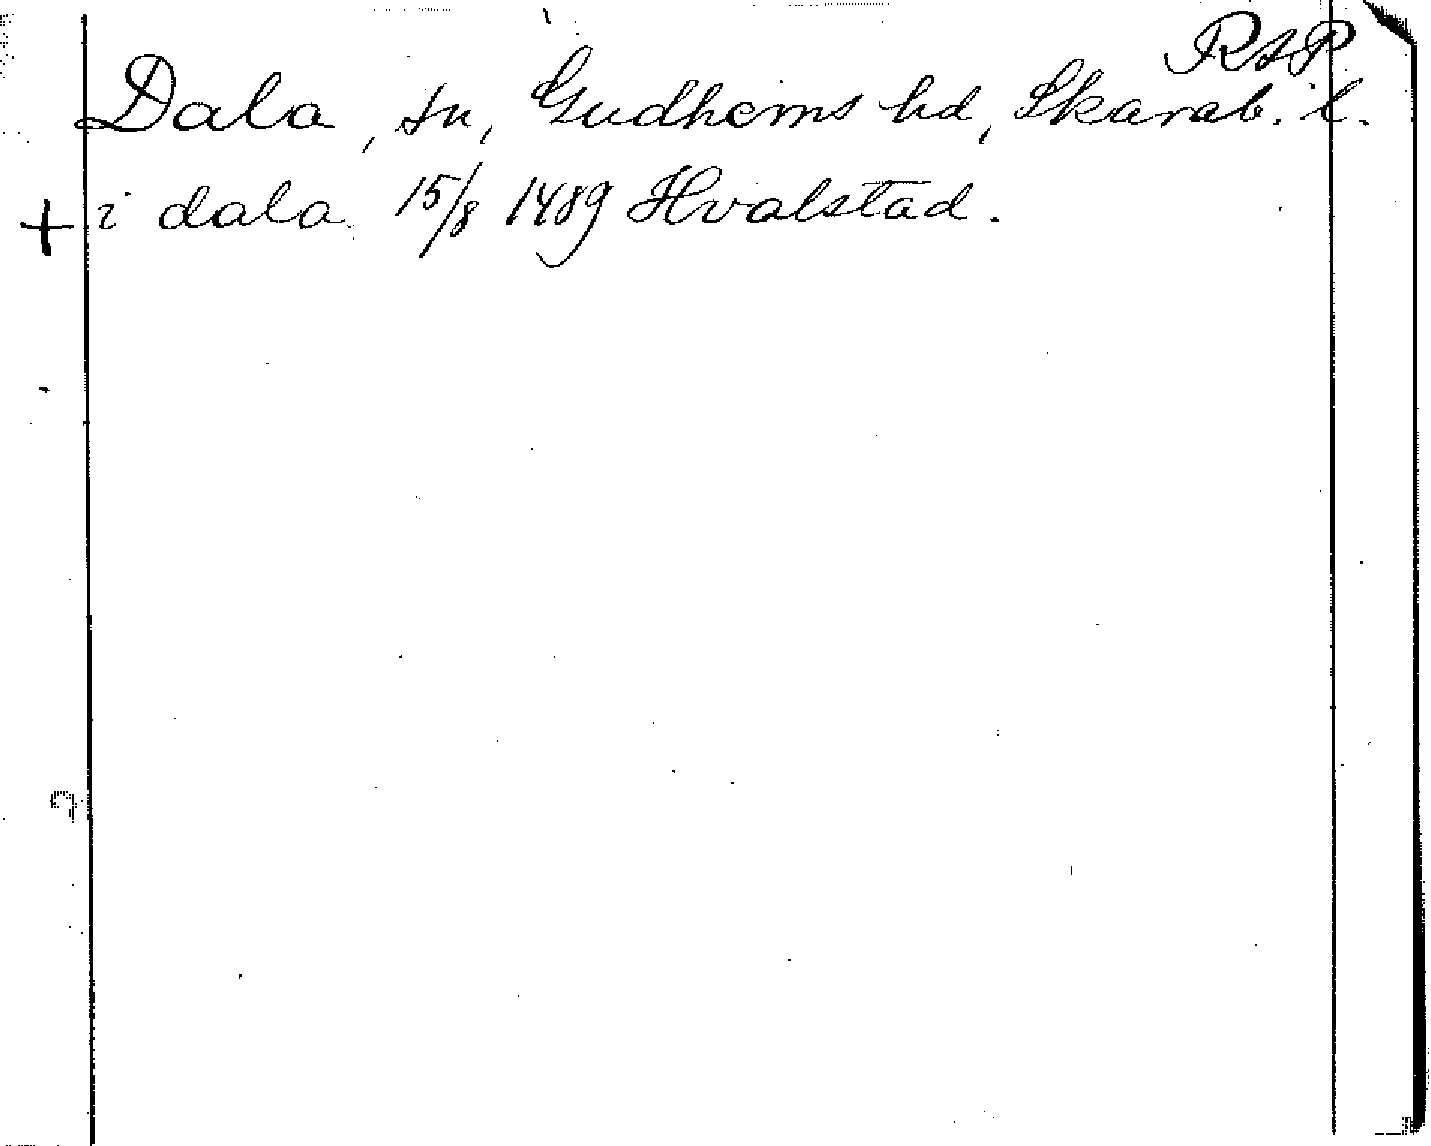 RAP
Dala, sn, Gudhems hd, Skarab. l.
+ i dala 15/8 1489 Hvalstad.